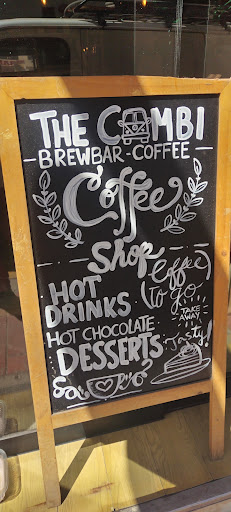 THE COMBI
BREWBAR-COFFEE
Coffee
Shop
(Coffee
to go)
HOT
DRINKS
TAKE
AWAY
HOT CHOCOLATE
DESSERTS
Tasty!